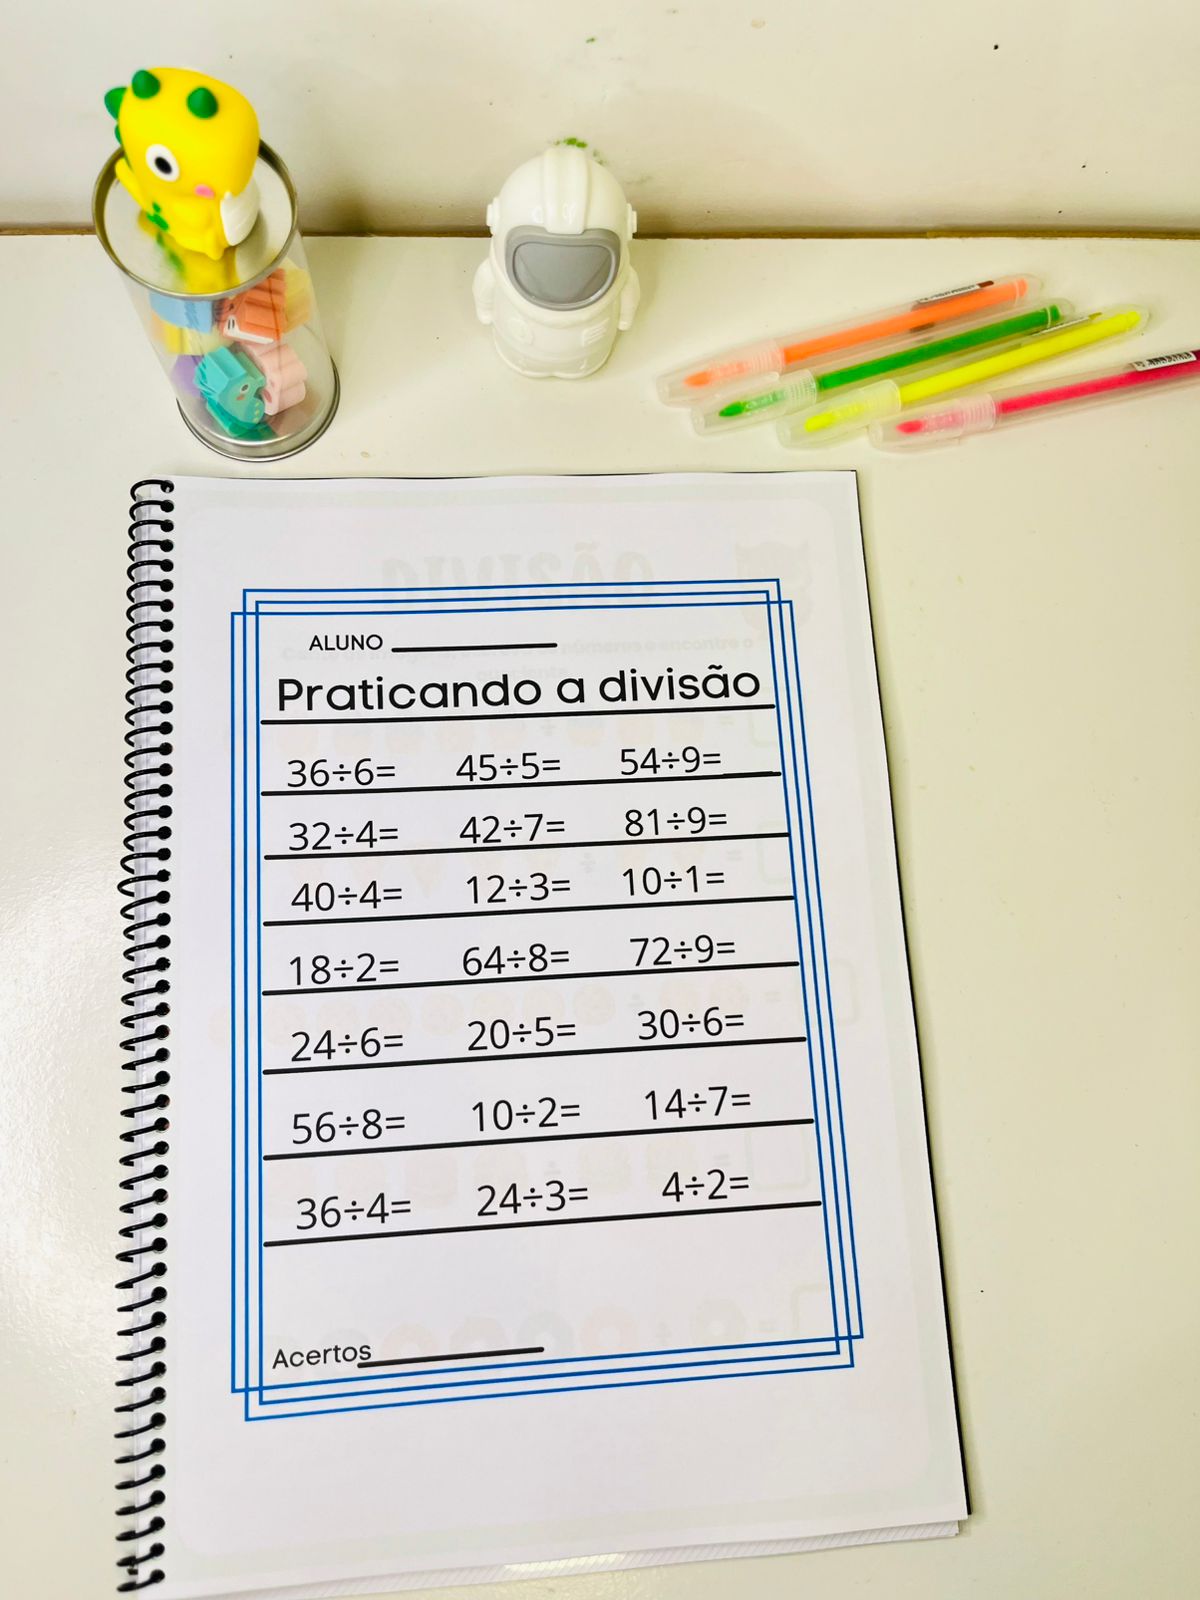 ALUNO
Praticando a divisão
36÷6= 45÷5= 54÷9=
32÷4= 42÷7= 81÷9=
40÷4= 12÷3= 10÷1=
18÷2= 64÷8= 72÷9=
24÷6= 20÷5= 30÷6=
56÷8= 10÷2= 14÷7=
36÷4= 24÷3= 4÷2=
Acertos